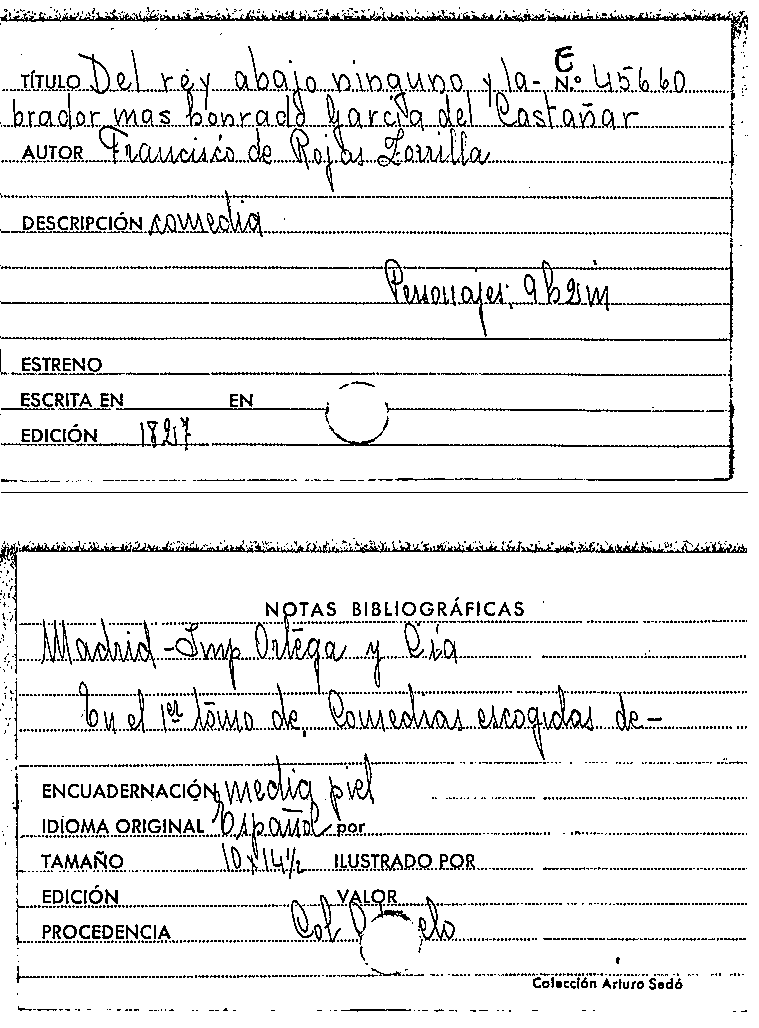 E
TÍTULO Del rey abajo ninguno, y la- N.º 45660
brador mas honrado García del Castañar
AUTOR Francisco de Rojas Zorrilla
DESCRIPCIÓN comedia
Personajes: 9h2m
ESTRENO
ESCRITA EN EN
EDICIÓN 1827
NOTAS BIBLIOGRÁFICAS
Madrid-Imp Ortega y Cía
En el 1er tomo de, Comedias escogidas de-
ENCUADERNACIÓN media piel
IDIOMA ORIGINAL Español por
TAMAÑO 10x14½ ILUSTRADO POR
EDICIÓN VALOR
PROCEDENCIA Col
Colección Arturo Sedó